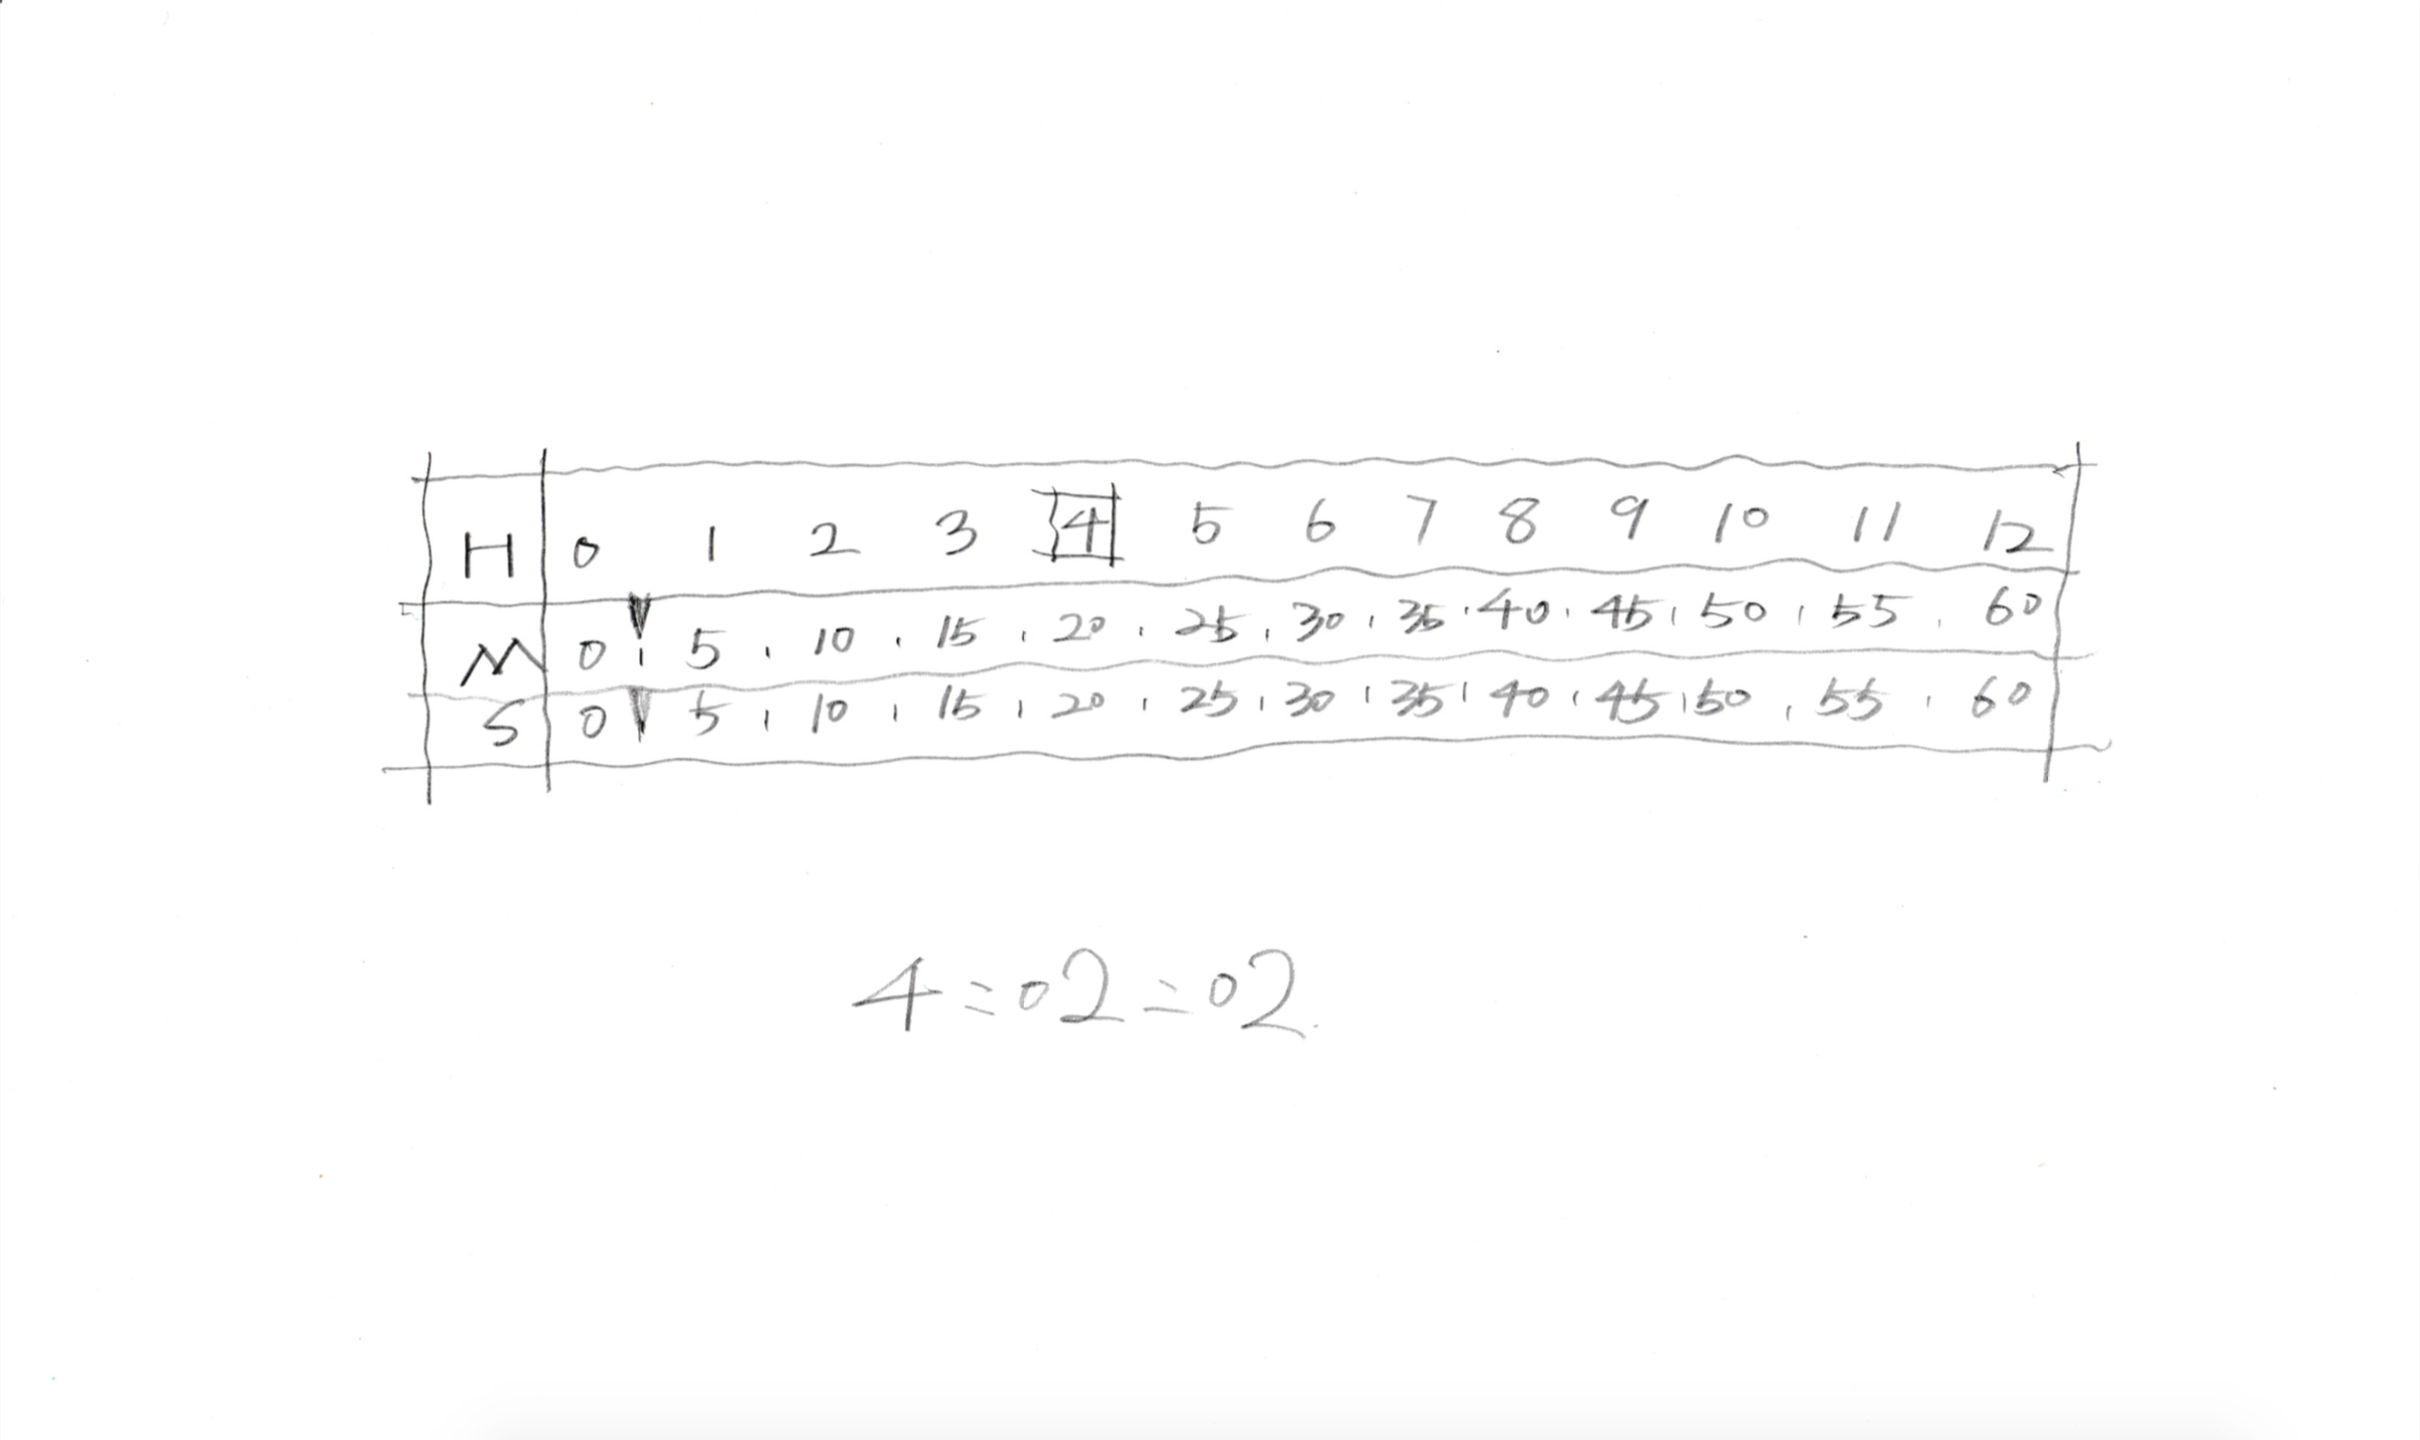 H 0 1 2 3 4 5 6 7 8 9 10 11 12
M 0 5 10 15 20 25 30 35 40 45 50 55 60
S 0 5 10 15 20 25 30 35 40 45 50 55 60
4=02=02